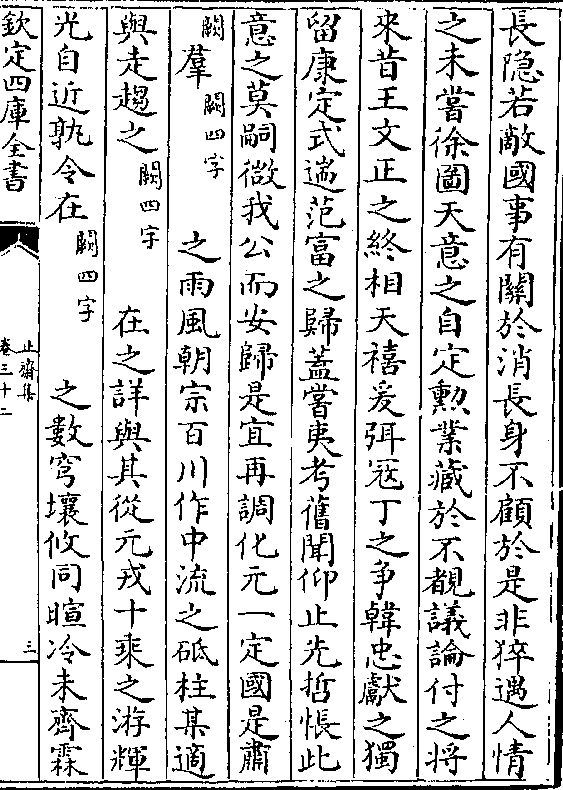 長隠若敵國事有關於消長身不顧於是非猝遇人情
之未嘗徐圖天意之自定勲業藏於不覩議論付之将
來昔王文正之終相天禧爰弭冦丁之争韓忠獻之獨
留康定式遄范富之歸蓋嘗夷考舊聞仰止先哲悵此
意之莫嗣微我公而安歸是宜再調化元一定國是肅
闕羣闕四字之雨風朝宗百川作中流之砥柱某適
與走趨之闕四字在之詳與其從元戎十乘之游輝
光自近孰令在闕四字之數穹壤攸同暄冷未齊霖
欽定四庫全書
止齋集
卷三十二
三